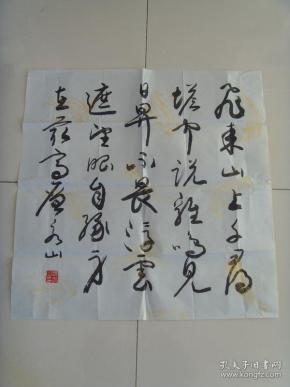 飛来山上千尋
塔中說雞鳴見
日昇不畏浮雲
遮望眼自緣身
在最高層 永山
孔夫子旧书网
www.kongfz.com